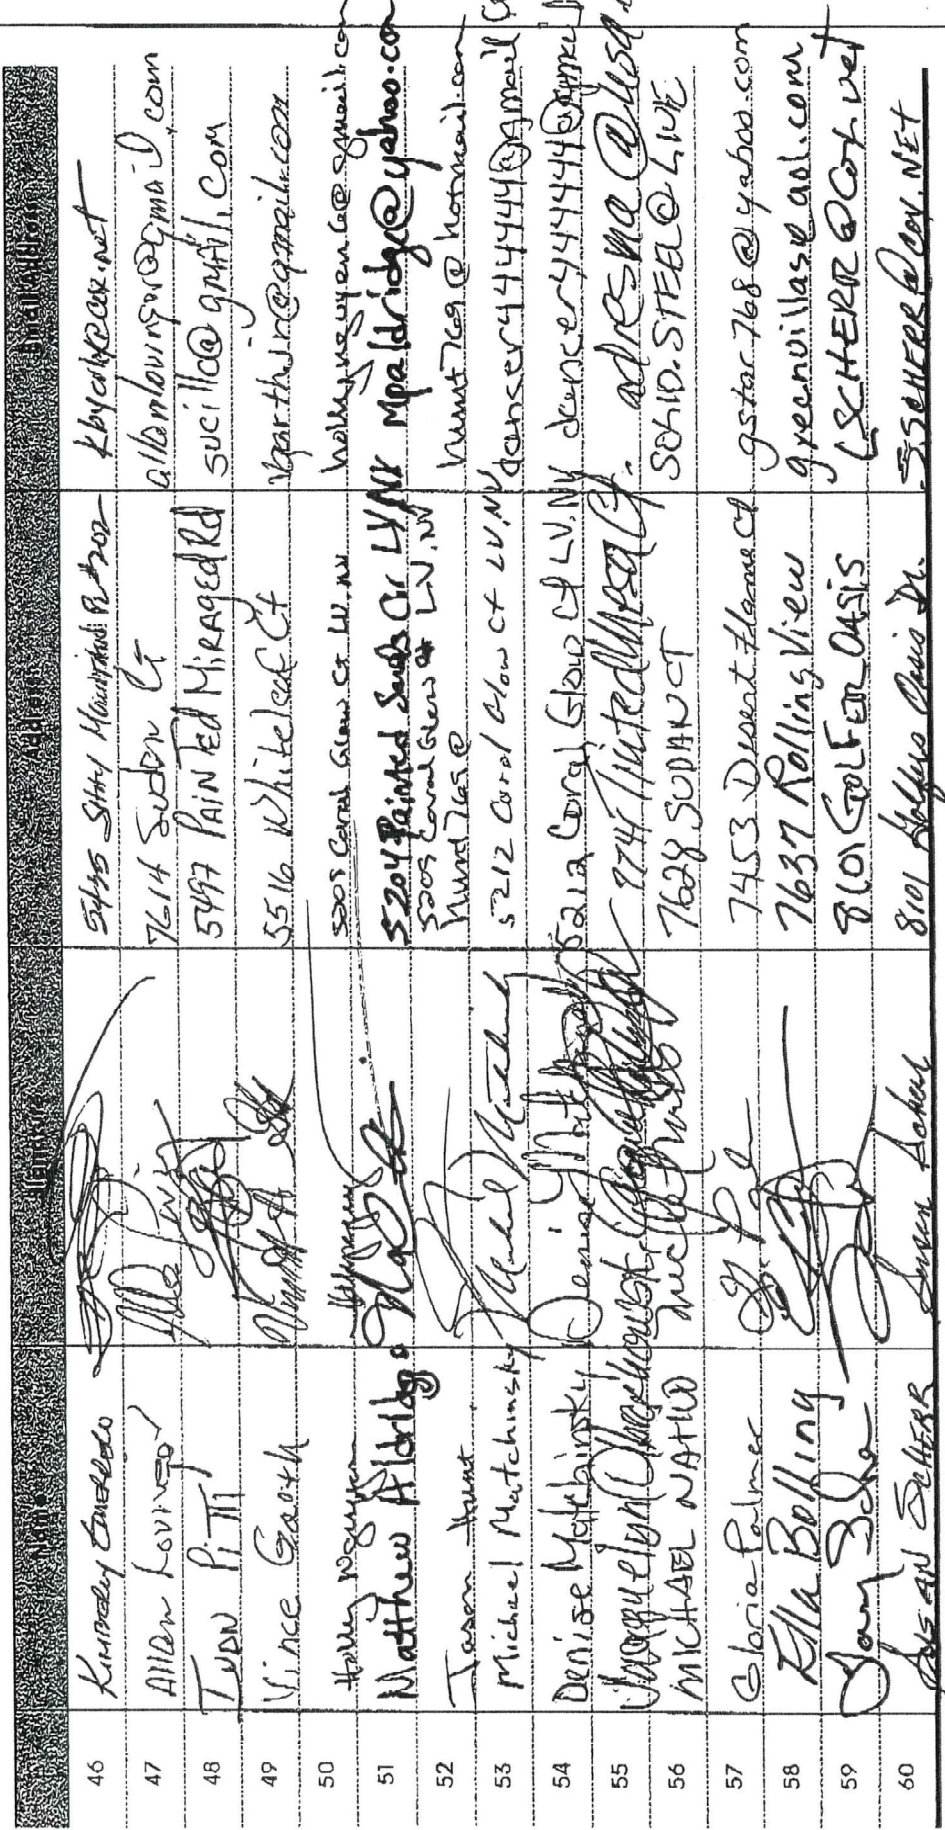 Name Signature Address Email Address
46 Kimberly 5435 Mountain 202 kbyerly@cox.net
47 Allen Loving 7614 Sudan Ct allamloving@gmail.com
48 IVAN PITTI 5497 PAINTED MIRAGED Rd sucilla@gmail.com
49 Vince Garth 5516 Whitecat Ct vgarthjr@gmail.com
50 Holly Nguyen 5205 Coral Glow Ct LV. NV hollynguyen66@gmail.com
51 Matthew Aldridge 5204 Painted Sands Cir LV NV Mpaldridge@yahoo.com
52 Jason Hunt 5205 Coral Glow Ct LV. NV hunt769@hotmail.com
hunt769@
53 Michael Matchinsky 5212 Coral Glow Ct LV. NV dancer444444@gmail
54 Denise Matchinsky 5212 Coral Glow Ct LV. NV dancer444444@gmail
55 7747 Tinted Mesa Ct. adresma@
56 MICHAEL 7628 SUDAN CT SCHID.STEEL@LIVE
57 Gloria Palmer 7453 Desert Flame Ct gstar768@yahoo.com
58 Ella Bolling 7637 Rolling View greenvillas aol.com
59 8101 GOLFER OASIS LSCHERR@Cox.net
60 SUSAN SCHERR Susan Scherr 8101 Golfers Oasis Dr. SSCHERR@COX.NET